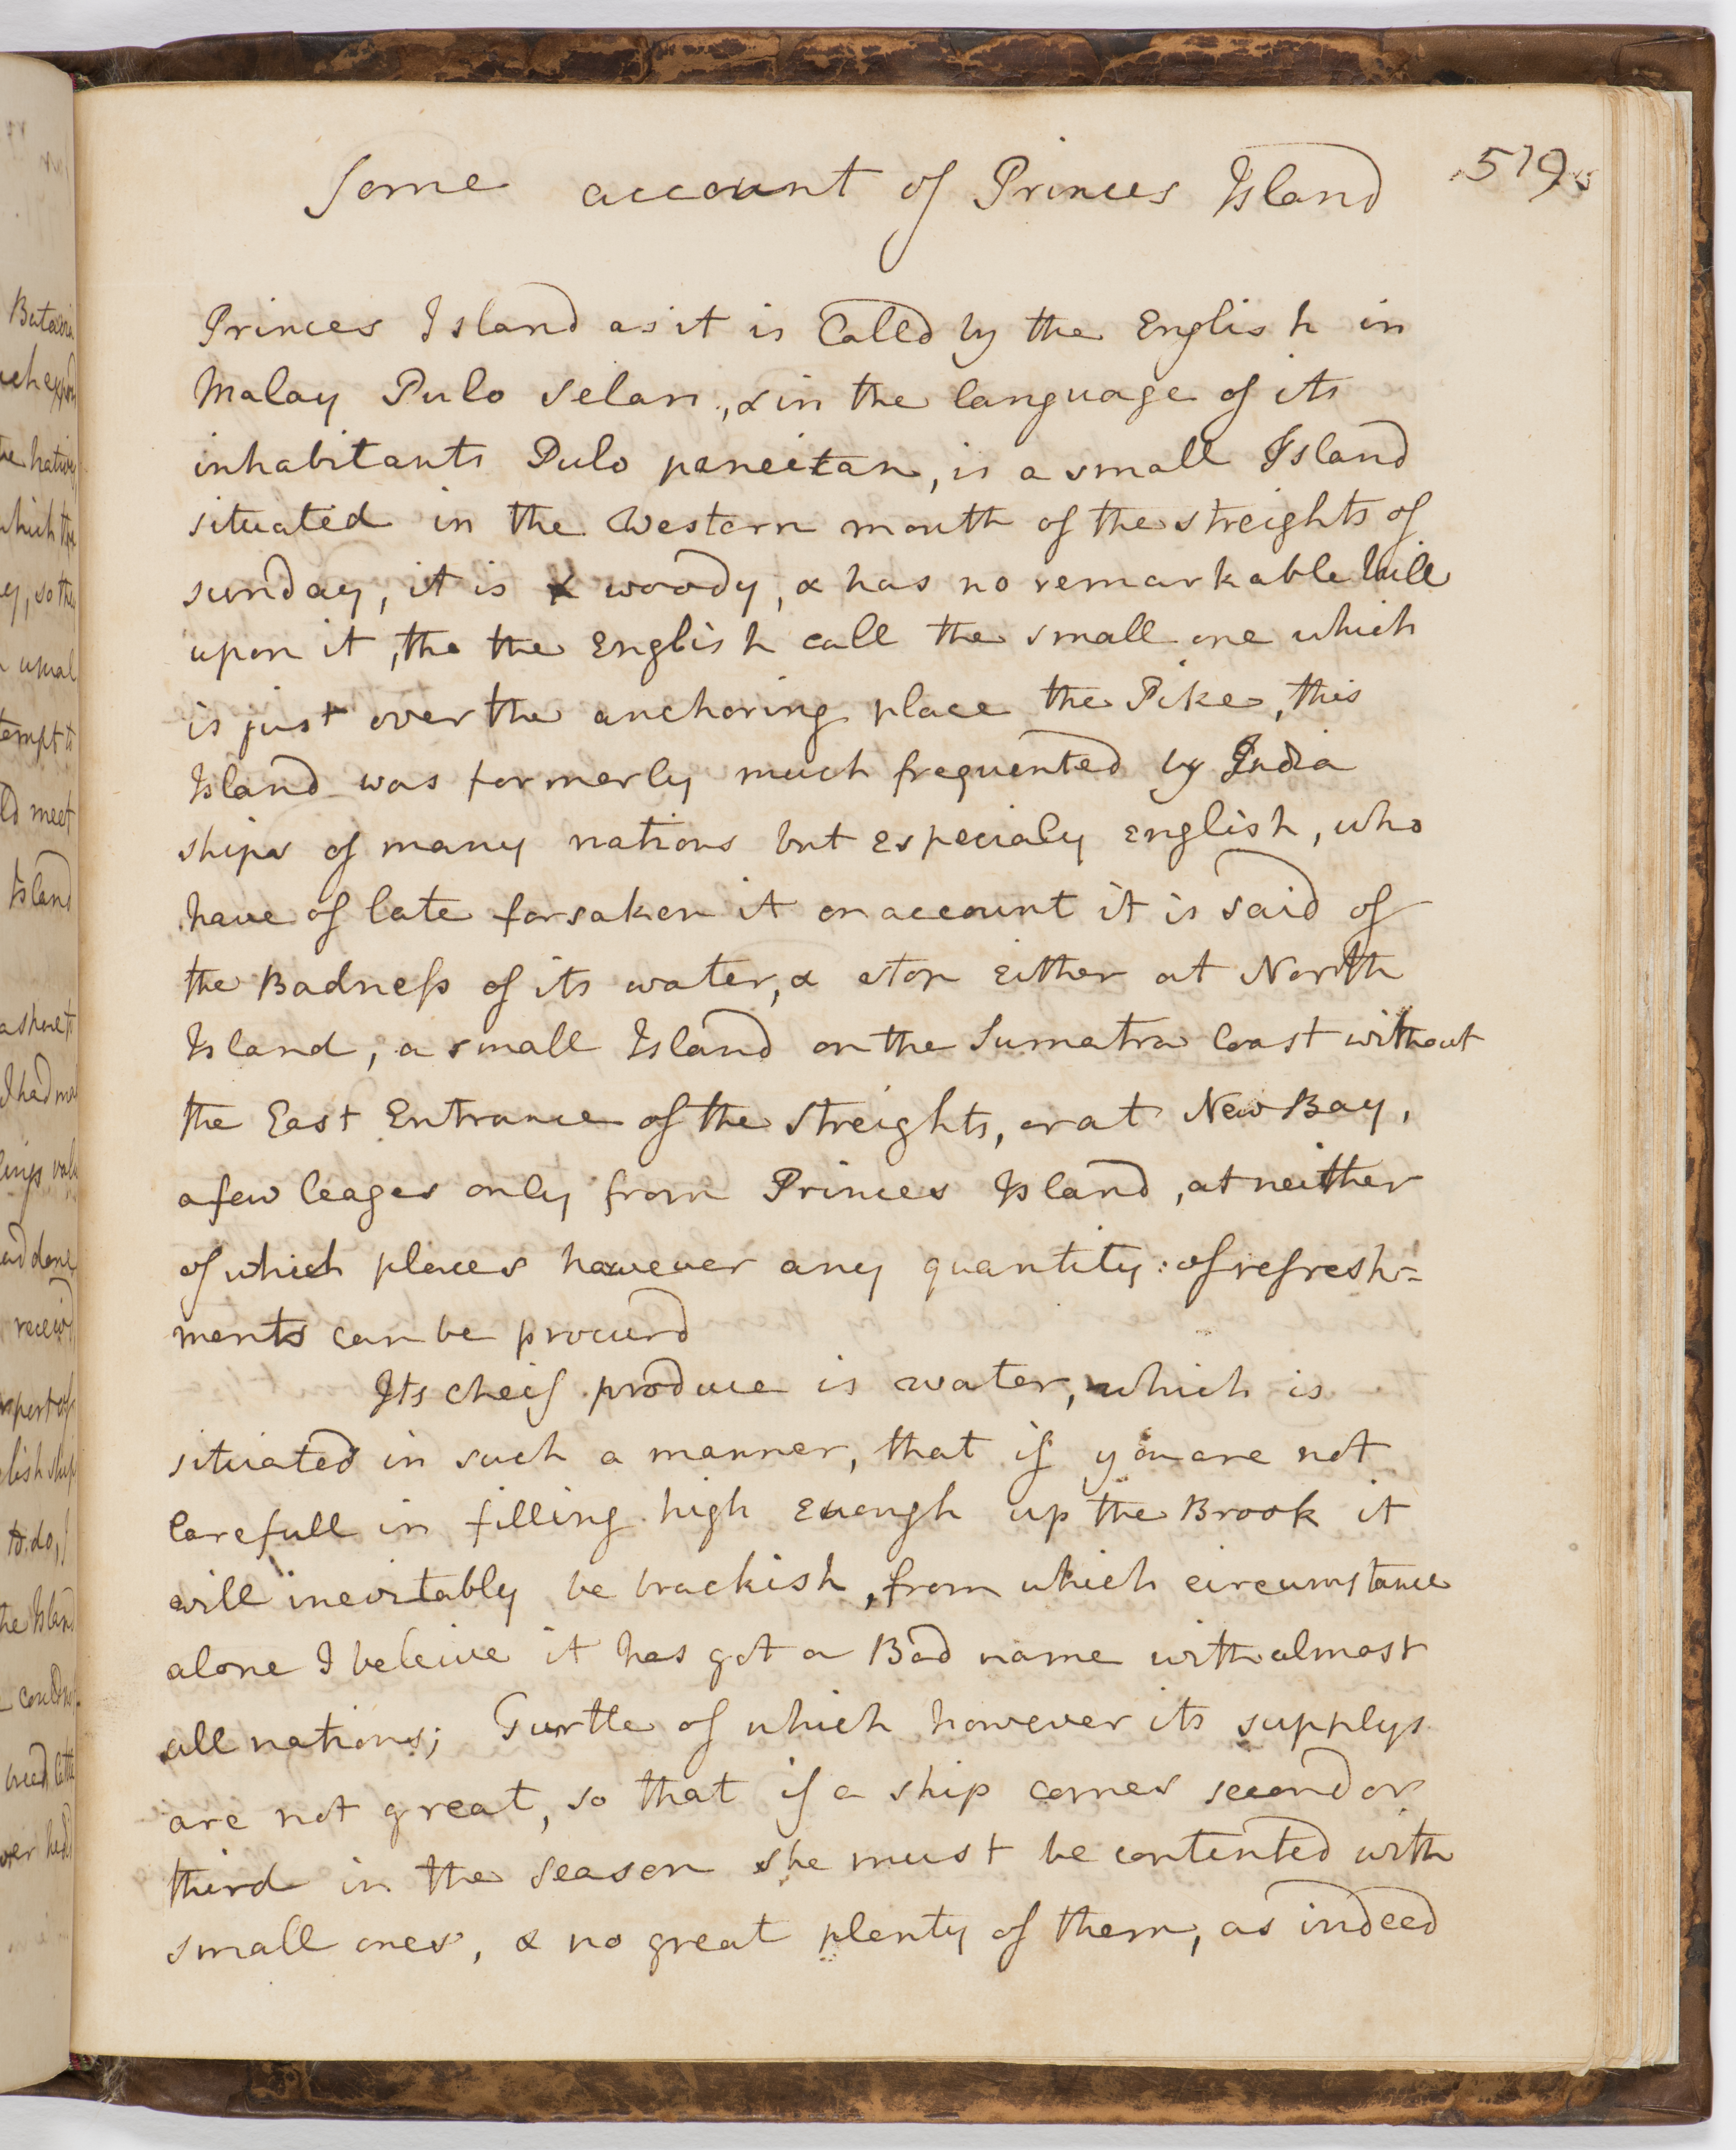 Some account of Princes Island
519.
Princes Island as it is Calld by the English in
Malay Pulo Selan, & in the language of its
inhabitants Pulo paneitan, is a small Island
situated in the Western mouth of the streights of
sunday, it is & woody, & has no remarkable hill
upon it, tho the English call the small one which
is just over the anchoring place the Pike, this
Island was formerly much frequented by India
ships of many nations but especialy English, who
have of late forsaken it on account it is said of
the Badness of its water, & stop either at North
Island, a small Island on the Sumatra Coast without
the East Entrance of the streights, or at New Bay,
a few leages only from Princes Island, at neither
of which places however any quantity: of refresh-
ments can be procurd
Its cheif produce is water, which is
situated in such a manner, that if you are not
Carefull in filling high enough up the Brook it
will inevitably be brackish, from which circumstance
alone I beleive it has got a Bad name with almost
all nations; Turtle of which however its supplys
are not great, so that if a ship comes second or
third in the season she must be contented with
small ones, & no great plenty of them, as indeed
Batavia
the natives
which the
so the
usual
ld meet
Island
I had
and done
receivd
to do,
the Island